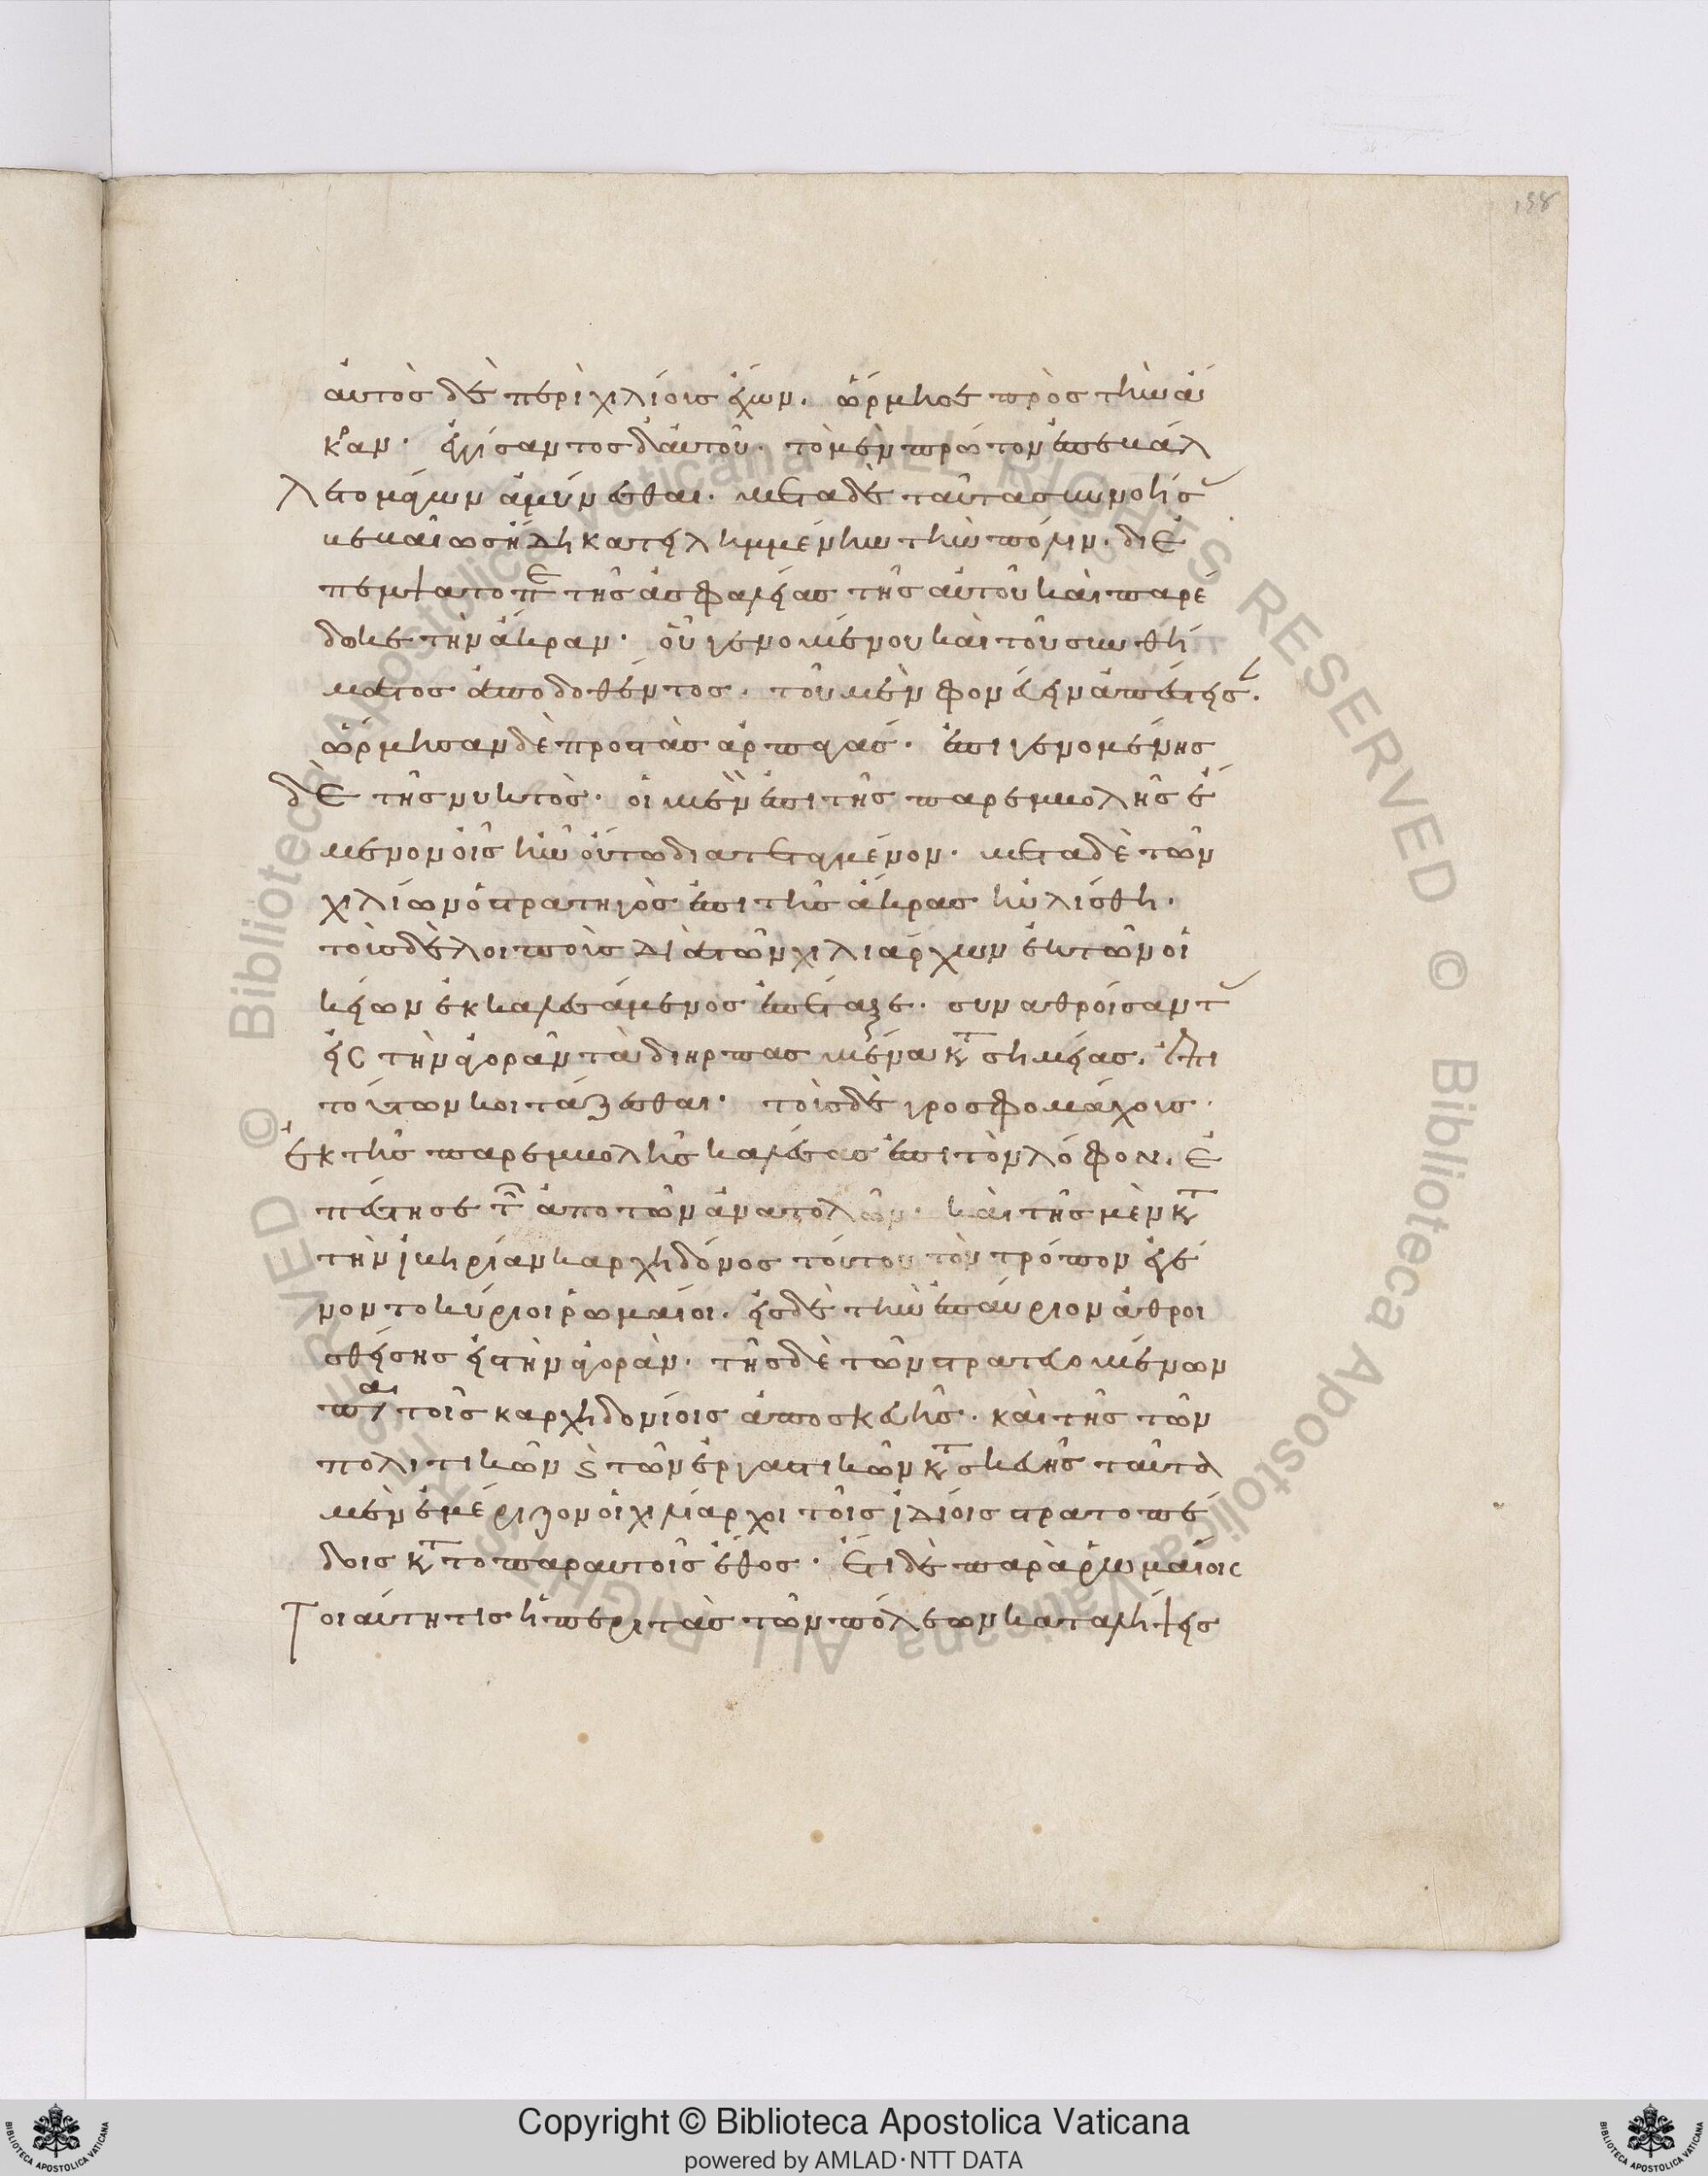 158
αὐτὸς δὲ περὶ χιλίοις ἔχων. ὥρμησε πρὸς τὴν ἄ
κραν. ἐγγίσαντος δ' αὐτοῦ. τὸ μὲν πρῶτον ἐπεβάλ
λετο μάγων ἀμύνεσθαι. μετὰ δὲ ταῦτα συννοήσας
βεβαίως ἤδη κατειλημμένην τὴν πόλιν. διε
πέμψατο περὶ τῆς ἀσφαλείας τῆς αὐτοῦ καὶ παρέ
δωκε τὴν ἄκραν. οὗ γενομένου καὶ τοῦ συνθή
ματος ἀποδοθέντος. τοῦ μὲν φονεύειν ἀπέστησαν.
ὥρμησαν δὲ προς τὰς ἁρπαγάς. ἐπιγενομένης
δὲ τῆς νυκτὸς. οἱ μὲν ἐπὶ τῆς παρεμβολῆς ἔ
μενον οἷς ἦν οὕτω διατεταγμένον. μετὰ δὲ τῶν
χιλίων ὁ στρατηγὸς ἐπὶ τῆς ἄκρας ηὐλίσθη.
τοῖς δὲ λοιποῖς διὰ τῶν χιλιάρχων ἐκ τῶν οἰ
κειῶν ἐκκαλεσάμενος ἐπέταξε. συναθροίσαντας
εἰς τὴν ἀγορὰν τὰ διηρπασμένα κατὰ σημείας. ἐπὶ
τούτων κοιτάζεσθαι. τοῖς δὲ γροσφομάχοις.
ἐκ τῆς παρεμβολῆς καλέσας ἐπὶ τὸν λόφον. ἐ
πέστησε τὸν ἀπὸ τῶν ἀνατολῶν. καὶ τῆς μὲν κατὰ
τὴν ἰβηρίαν καρχηδόνος τοῦτον τὸν τρόπον ἐγέ
νοντο κύριοι ῥωμαῖοι. εἰς δὲ τὴν ἐπαύριον ἀθροι
σθείσης εἰς τὴν ἀγορὰν. τῆς δὲ τῶν στρατευομένων
παρὰ τοῖς καρχηδονίοις ἀποσκευῆς. καὶ τῆς τῶν
πολιτικῶν καὶ τῶν ἐργαστικῶν κατασκευῆς ταῦτα
μὲν ἐμέριζον οἱ χιλίαρχοι τοῖς ἰδίοις στρατοπέ
δοις κατὰ τὸ παρ αὐτοῖς ἔθος. ἔστι δὲ παρὰ ῥωμαίοις
τοιαύτη τις ἡ περὶ τὰς τῶν πόλεων καταλήψεις
Copyright © Biblioteca Apostolica Vaticana
powered by AMLAD·NTT DATA